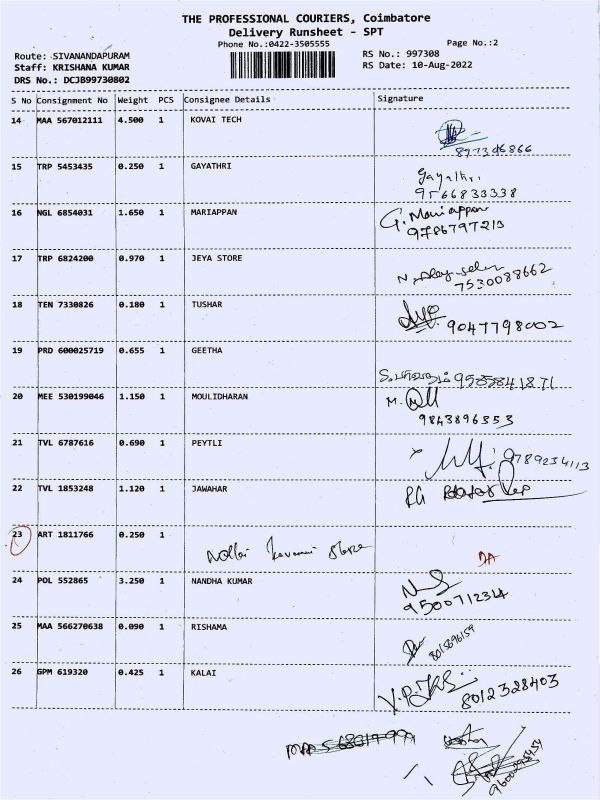 THE PROFESSIONAL COURIERS, Coimbatore
Delivery Runsheet - SPT
Phone No.:0422-3505555
Page No.:2
Route: SIVANANDAPURAM
RS No.: 997308
Staff: KRISHANA KUMAR
RS Date: 10-Aug-2022
DRS No.: DCJB99730802
S No Consignment No Weight PCS Consignee Details Signature
14 MAA 567012111 4.500 1 KOVAI TECH
15 TRP 5453435 0.250 1 GAYATHRI
Gayathri
9566833338
16 NGL 6854031 1.650 1 MARIAPPAN
G. Mariappan
9786797213
17 TRP 6824200 0.970 1 JEYA STORE
7530088662
18 TEN 7330826 0.180 1 TUSHAR
9047798002
19 PRD 600025719 0.655 1 GEETHA
20 MEE 530199046 1.150 1 MOULIDHARAN
M.
9843896553
21 TVL 6787616 0.690 1 PEYTLI
9789234113
22 TVL 1853248 1.120 1 JAWAHAR
23 ART 1811766 0.250 1
DA
24 POL 552865 3.250 1 NANDHA KUMAR
9500712314
25 MAA 566270638 0.090 1 RISHAMA
8015896159
26 GPM 619320 0.425 1 KALAI
8012328403